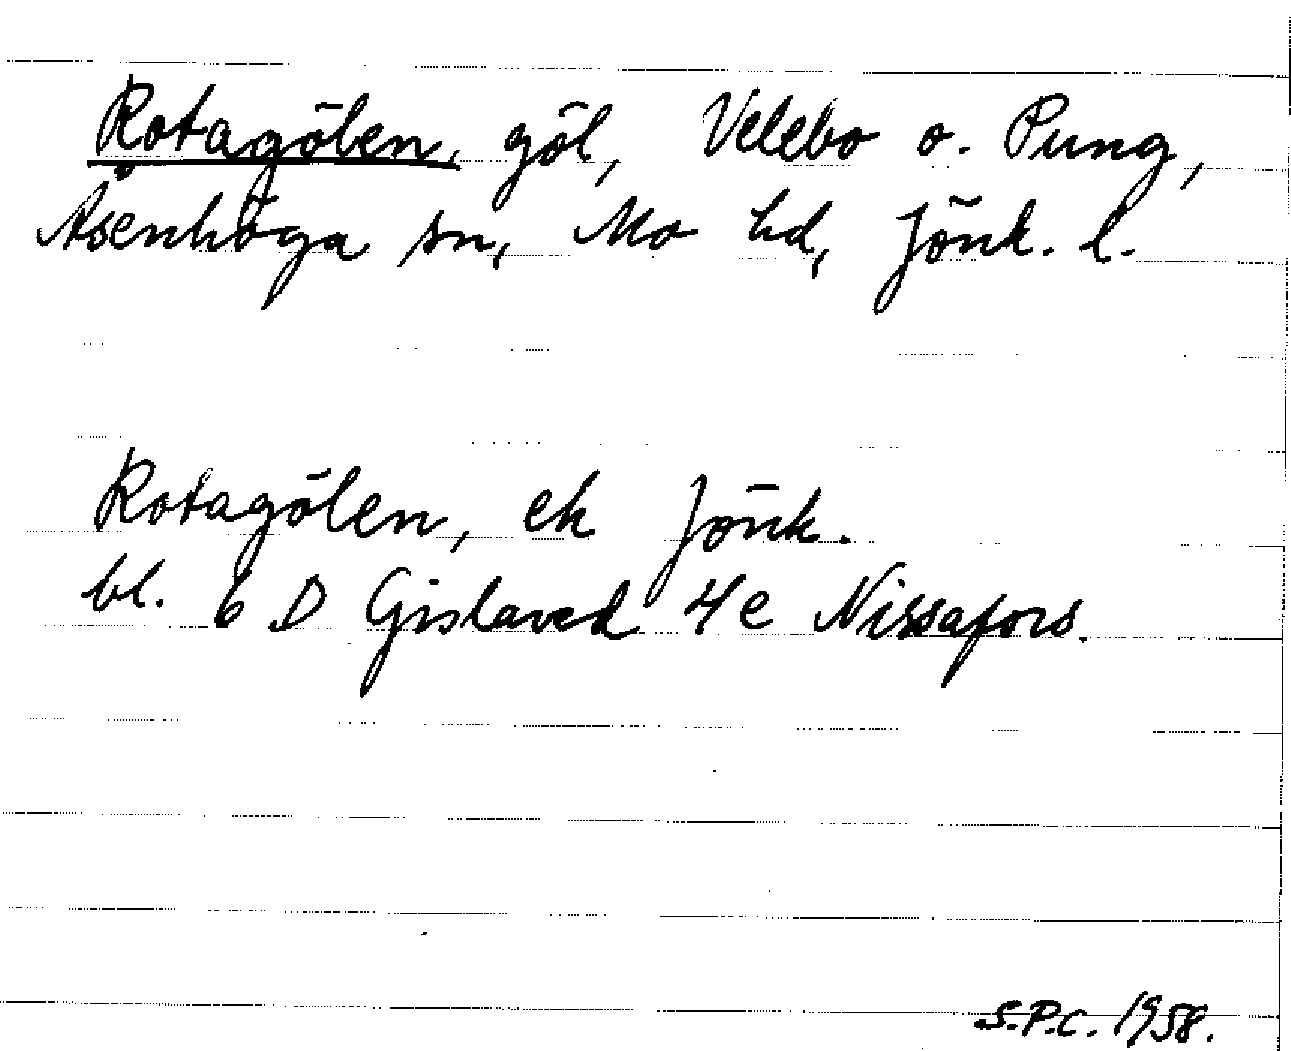 Rotagölen, göl, Velebo o. Pung,
Åsenhöga sn, Mo hd, Jönk. l.
Rotagölen, ek Jönk.
bl. 6 D Gislaved 4e Nissafors.
S.P.C. 1958.